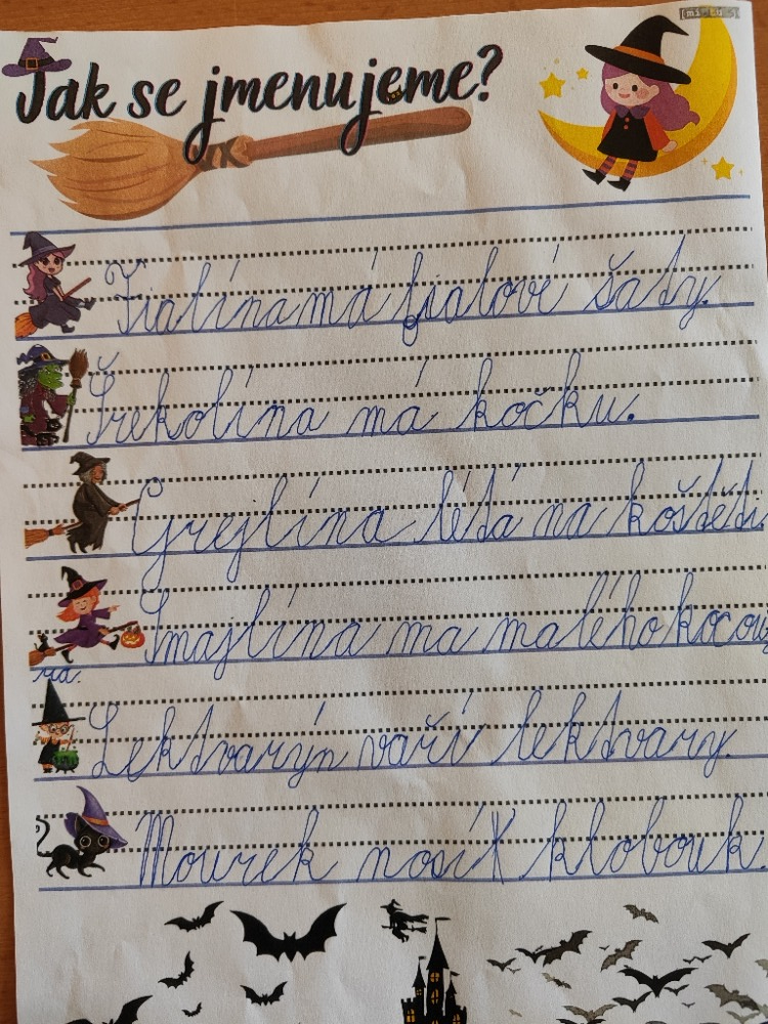 Jak se jmenujeme?
Fialína má fialové šaty.
Šrekolína má kočku.
Grejlína létá na koštěti.
Smajlína ma malého kocou
ra.
Lektvarýn vaří lektvary.
Mourek nosí klobouk.